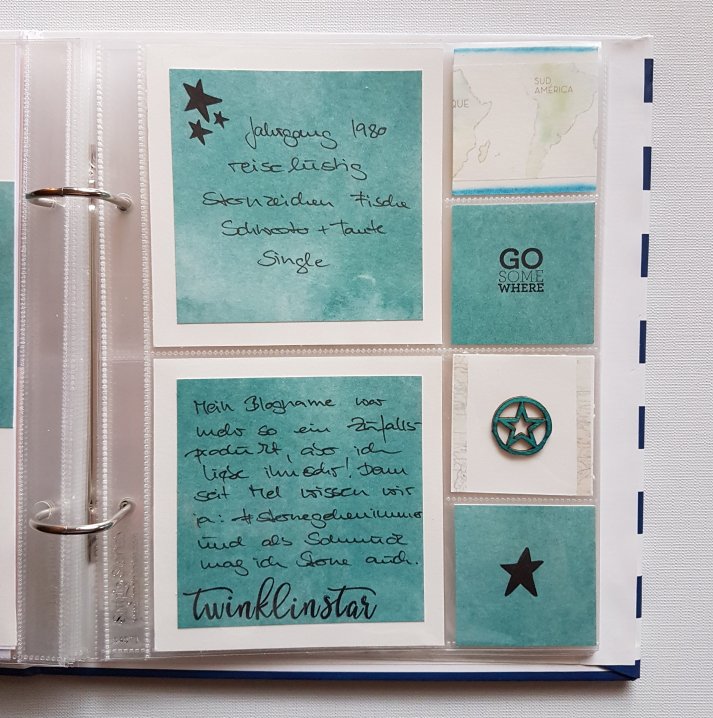 Jahrgang 1980
reiselustig
Sternzeichen Fische
Schwester + Tante
Single
Mein Blogname war
mehr so ein Zufalls-
produkt, aber ich
liebe ihn sehr! Denn
seit Mel wissen wir
ja: #sternegehenimmer
und als Schmuck
mag ich Sterne auch.
twinklinstar
QUE
SUD
AMÉRICA
GO
SOME
WHERE